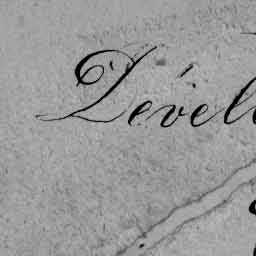 Dévelo